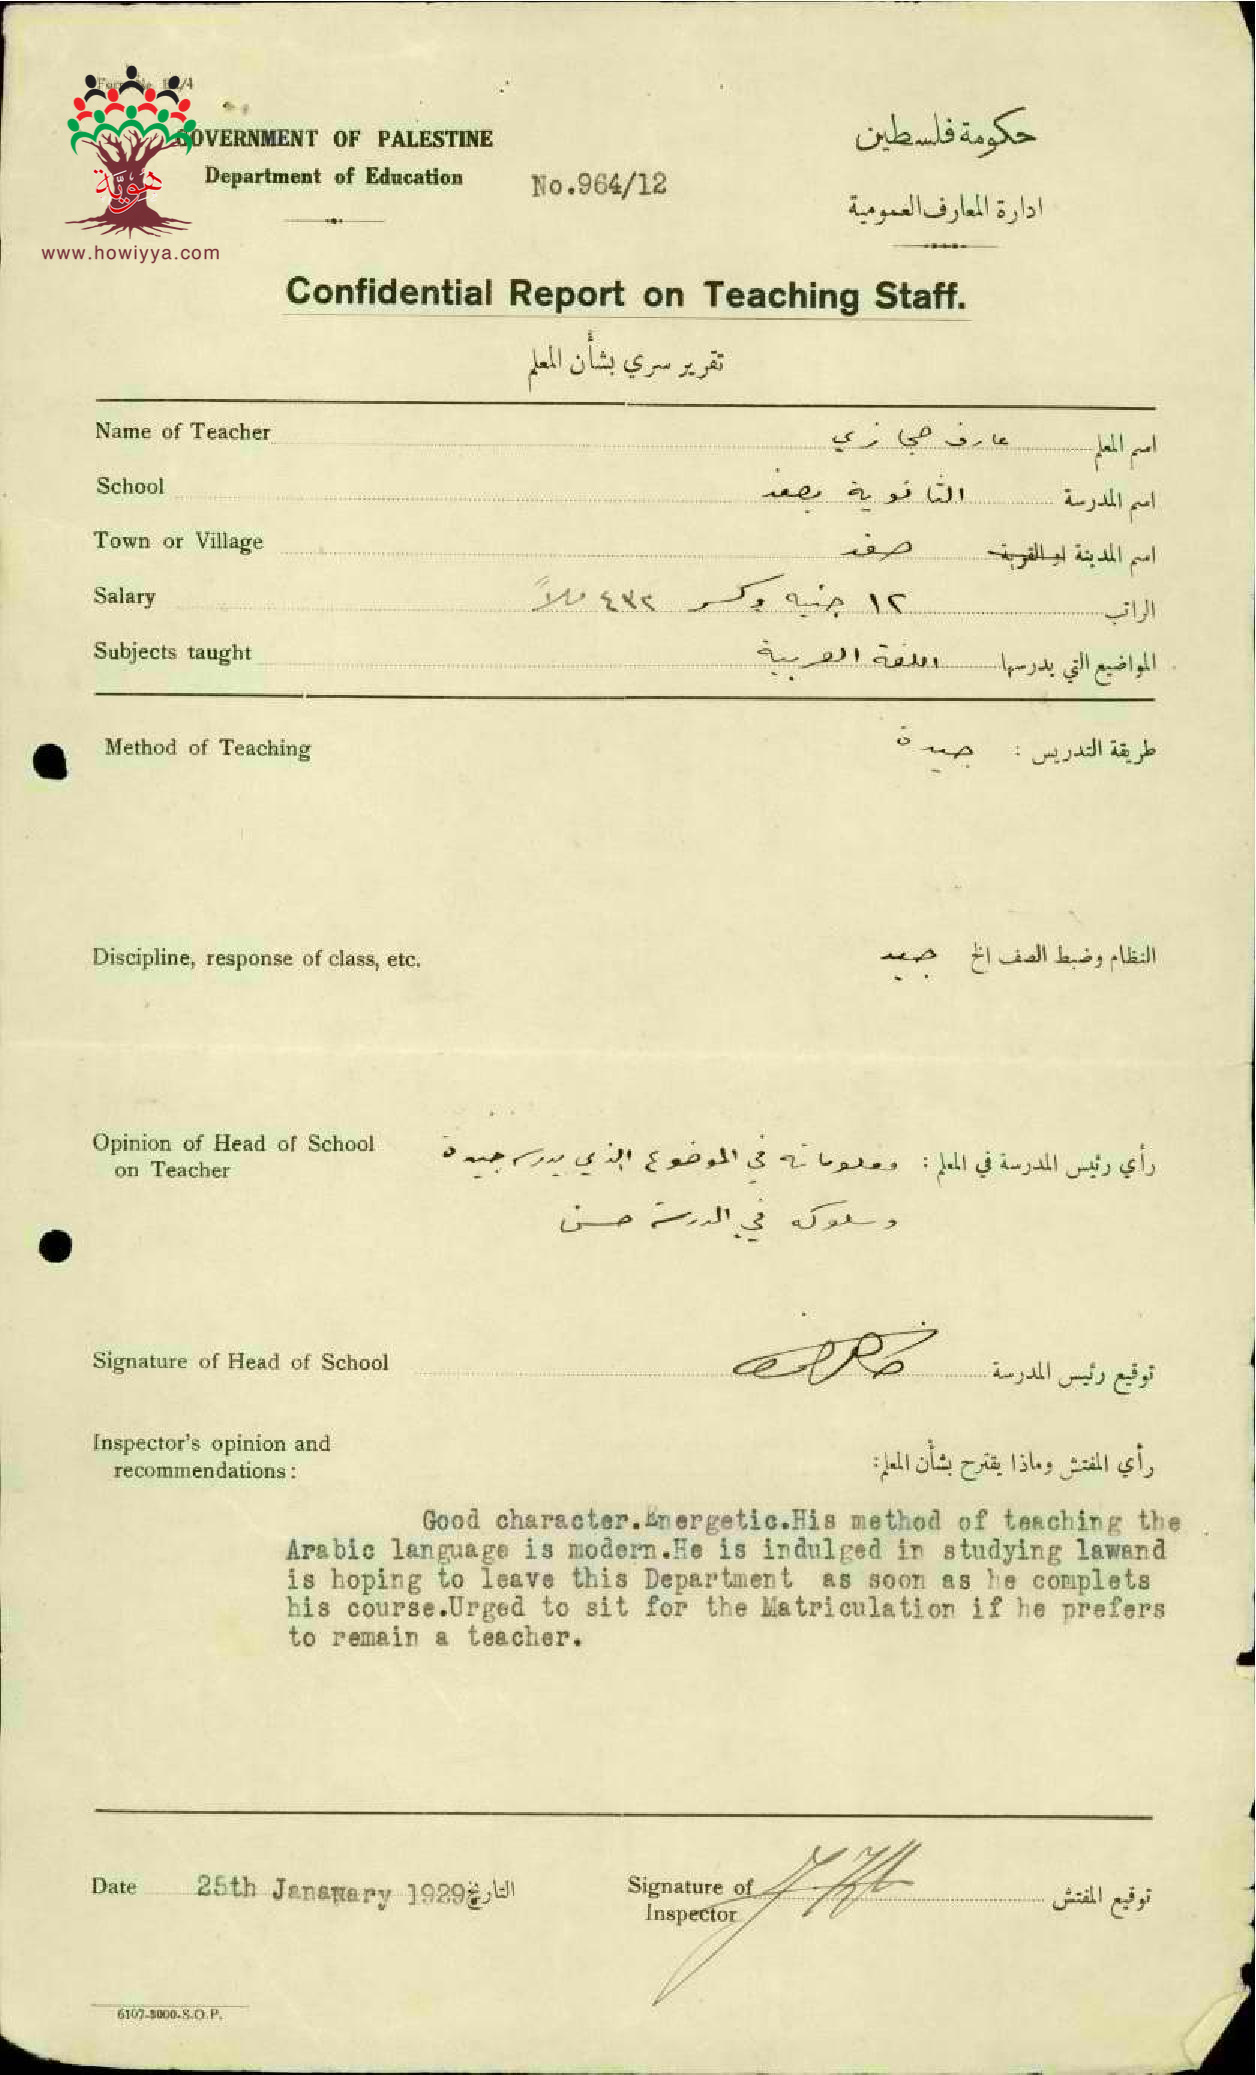 GOVERNMENT OF PALESTINE
Department of Education
No.964/12
حكومة فلسطين
ادارة المعارف العمومية
هوية
www.howiyya.com
Confidential Report on Teaching Staff.
تقرير سري بشأن المعلم
Name of Teacher عارف حجازي اسم المعلم
School الثانوية بصفد اسم المدرسة
Town or Village صفد اسم المدينة او القرية
Salary ١٢ جنيه وكسر ٤٣٢ ملاً الراتب
Subjects taught اللغة العربية المواضيع التي يدرسها
Method of Teaching طريقة التدريس : جيدة
Discipline, response of class, etc. النظام وضبط الصف الخ جيد
Opinion of Head of School
on Teacher
رأي رئيس المدرسة في المعلم : ومعلوماته في الموضوع الذي يدرسه جيدة
وسلوكه في المدرسة حسن
Signature of Head of School توقيع رئيس المدرسة
Inspector's opinion and
recommendations :
رأي المفتش وماذا يقترح بشأن المعلم:
Good character.Energetic.His method of teaching the
Arabic language is modern.He is indulged in studying lawand
is hoping to leave this Department as soon as he complets
his course.Urged to sit for the Matriculation if he prefers
to remain a teacher.
Date 25th January 1929 التاريخ
Signature of
Inspector
توقيع المفتش
6107-3000-S.O.P.